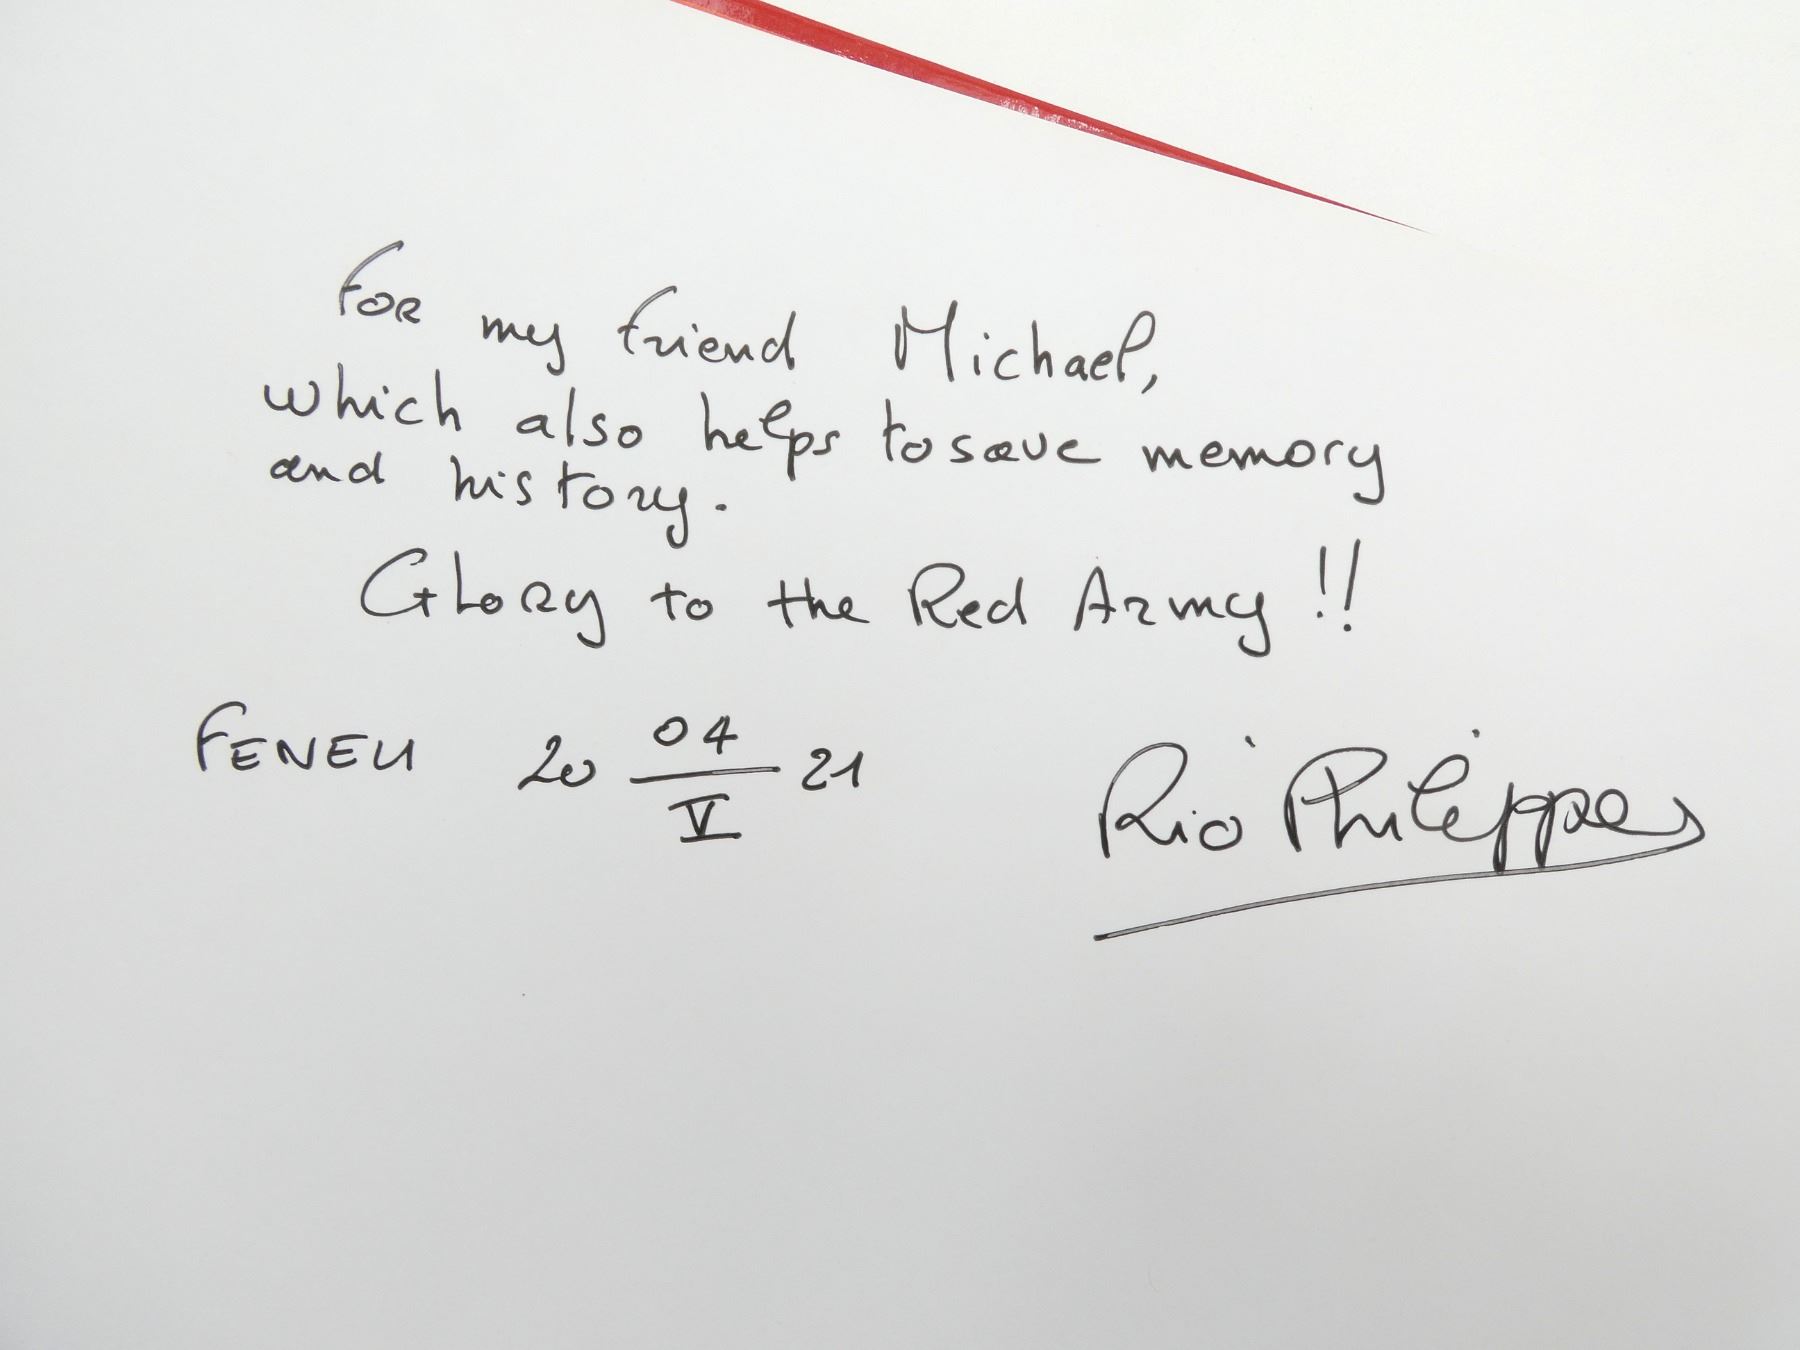 For my friend Michael,
which also helps to save memory
and history.
Glory to the Red Army !!
FENEU 20 04/V 21
Rio Philippe